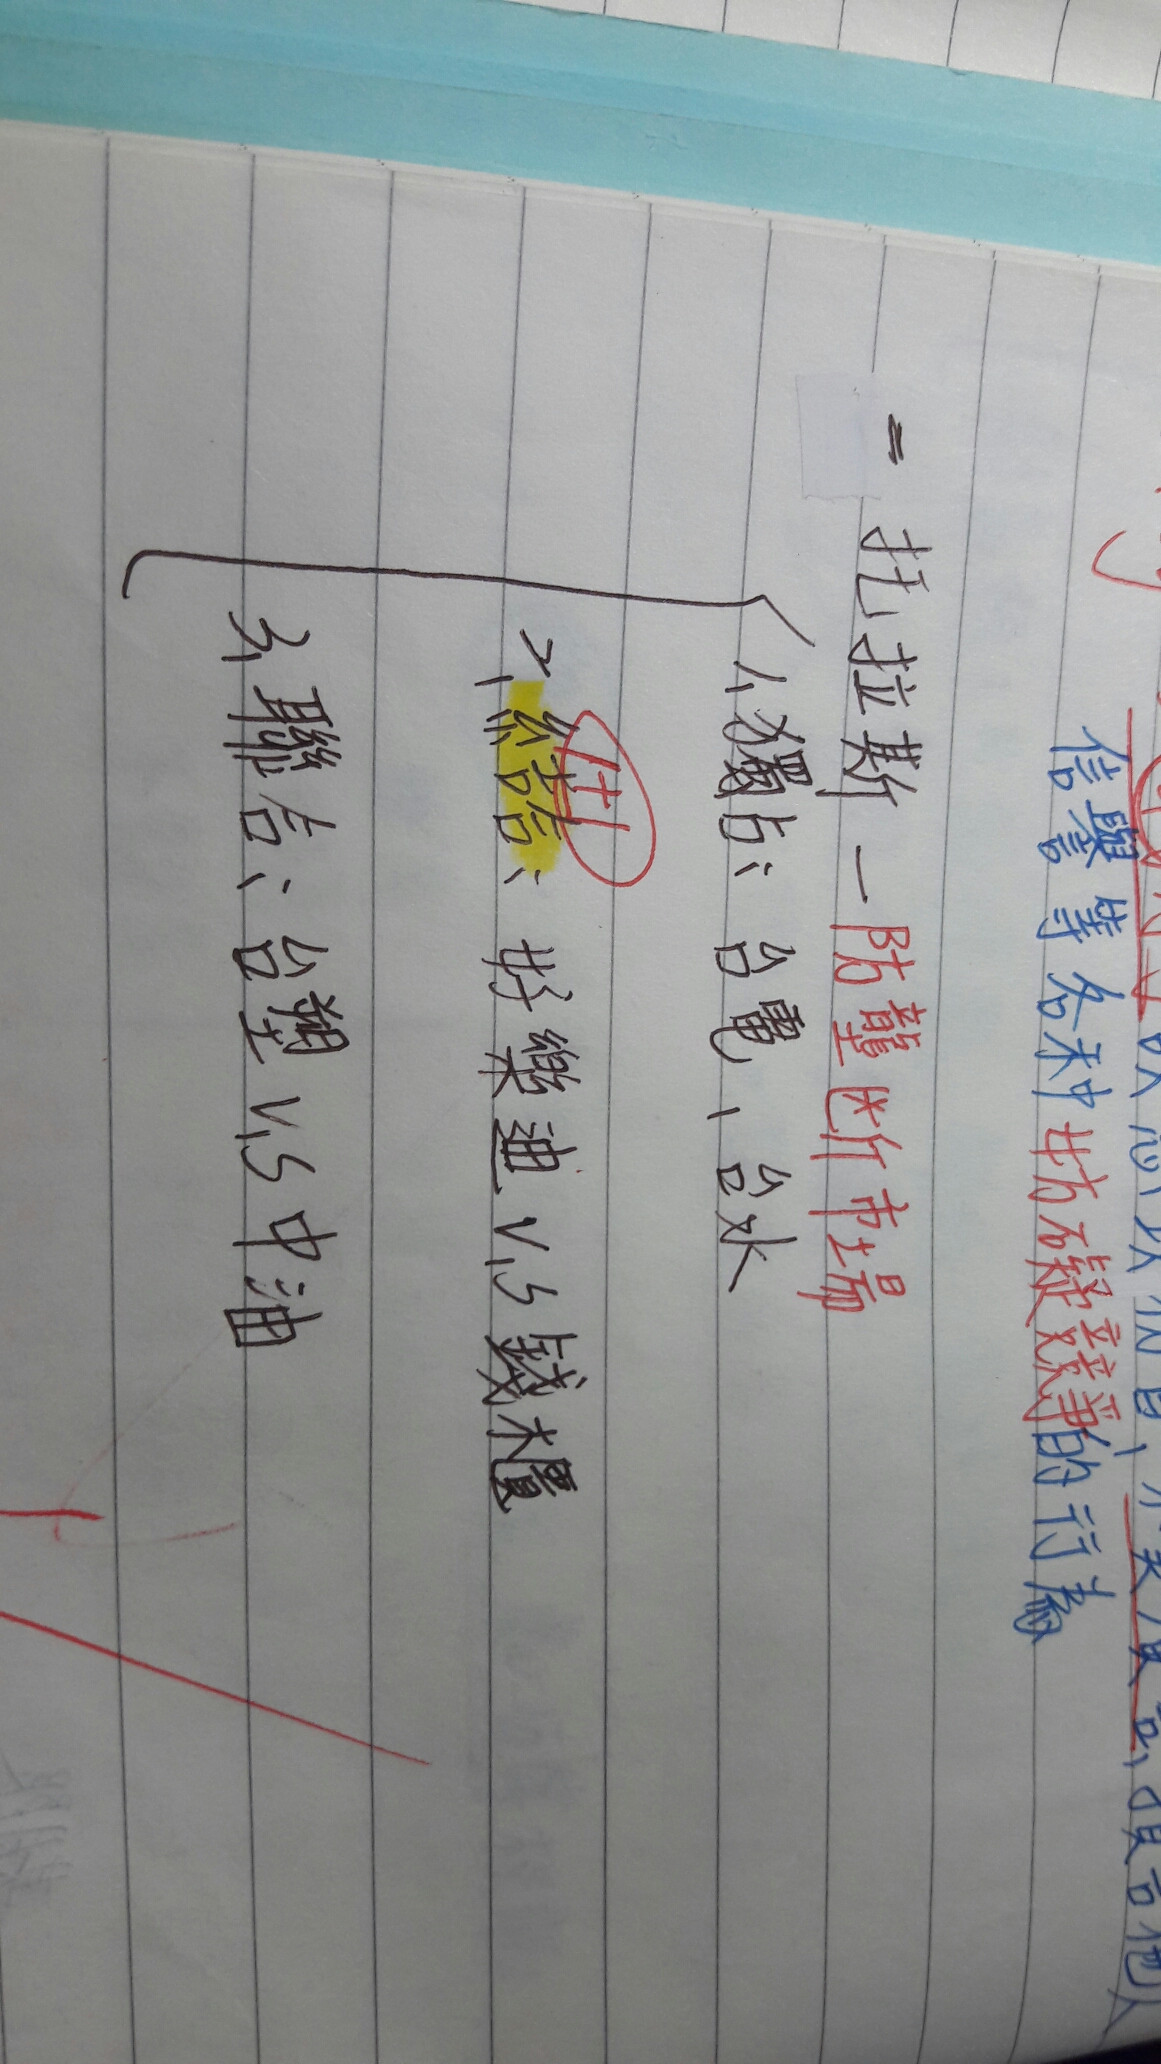 信譽等各種妨礙競爭的行為
= 托拉斯 — 防壟斷市場
1、獨占: 台電、台水
2、結合: 好樂迪 V.S 錢櫃
3、聯合: 台塑 V.S 中油